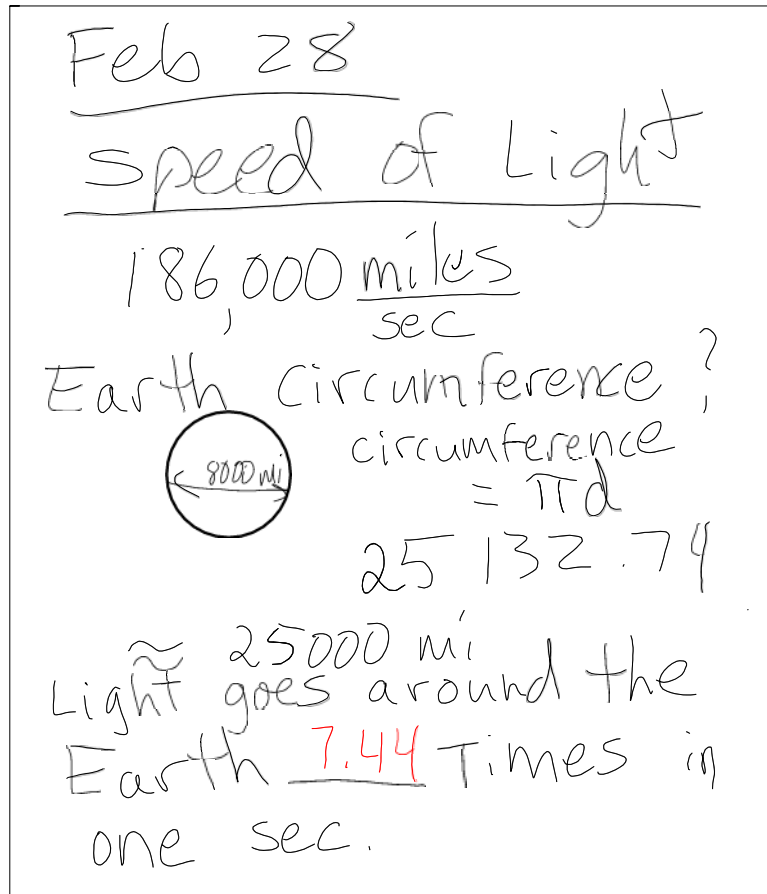 Feb 28
Speed of Light
186,000 miles
sec
Earth circumference?
8000 mi
circumference
= πd
25 132.74
≈ 25000 mi
Light goes around the
Earth 7.44 Times in
one sec.